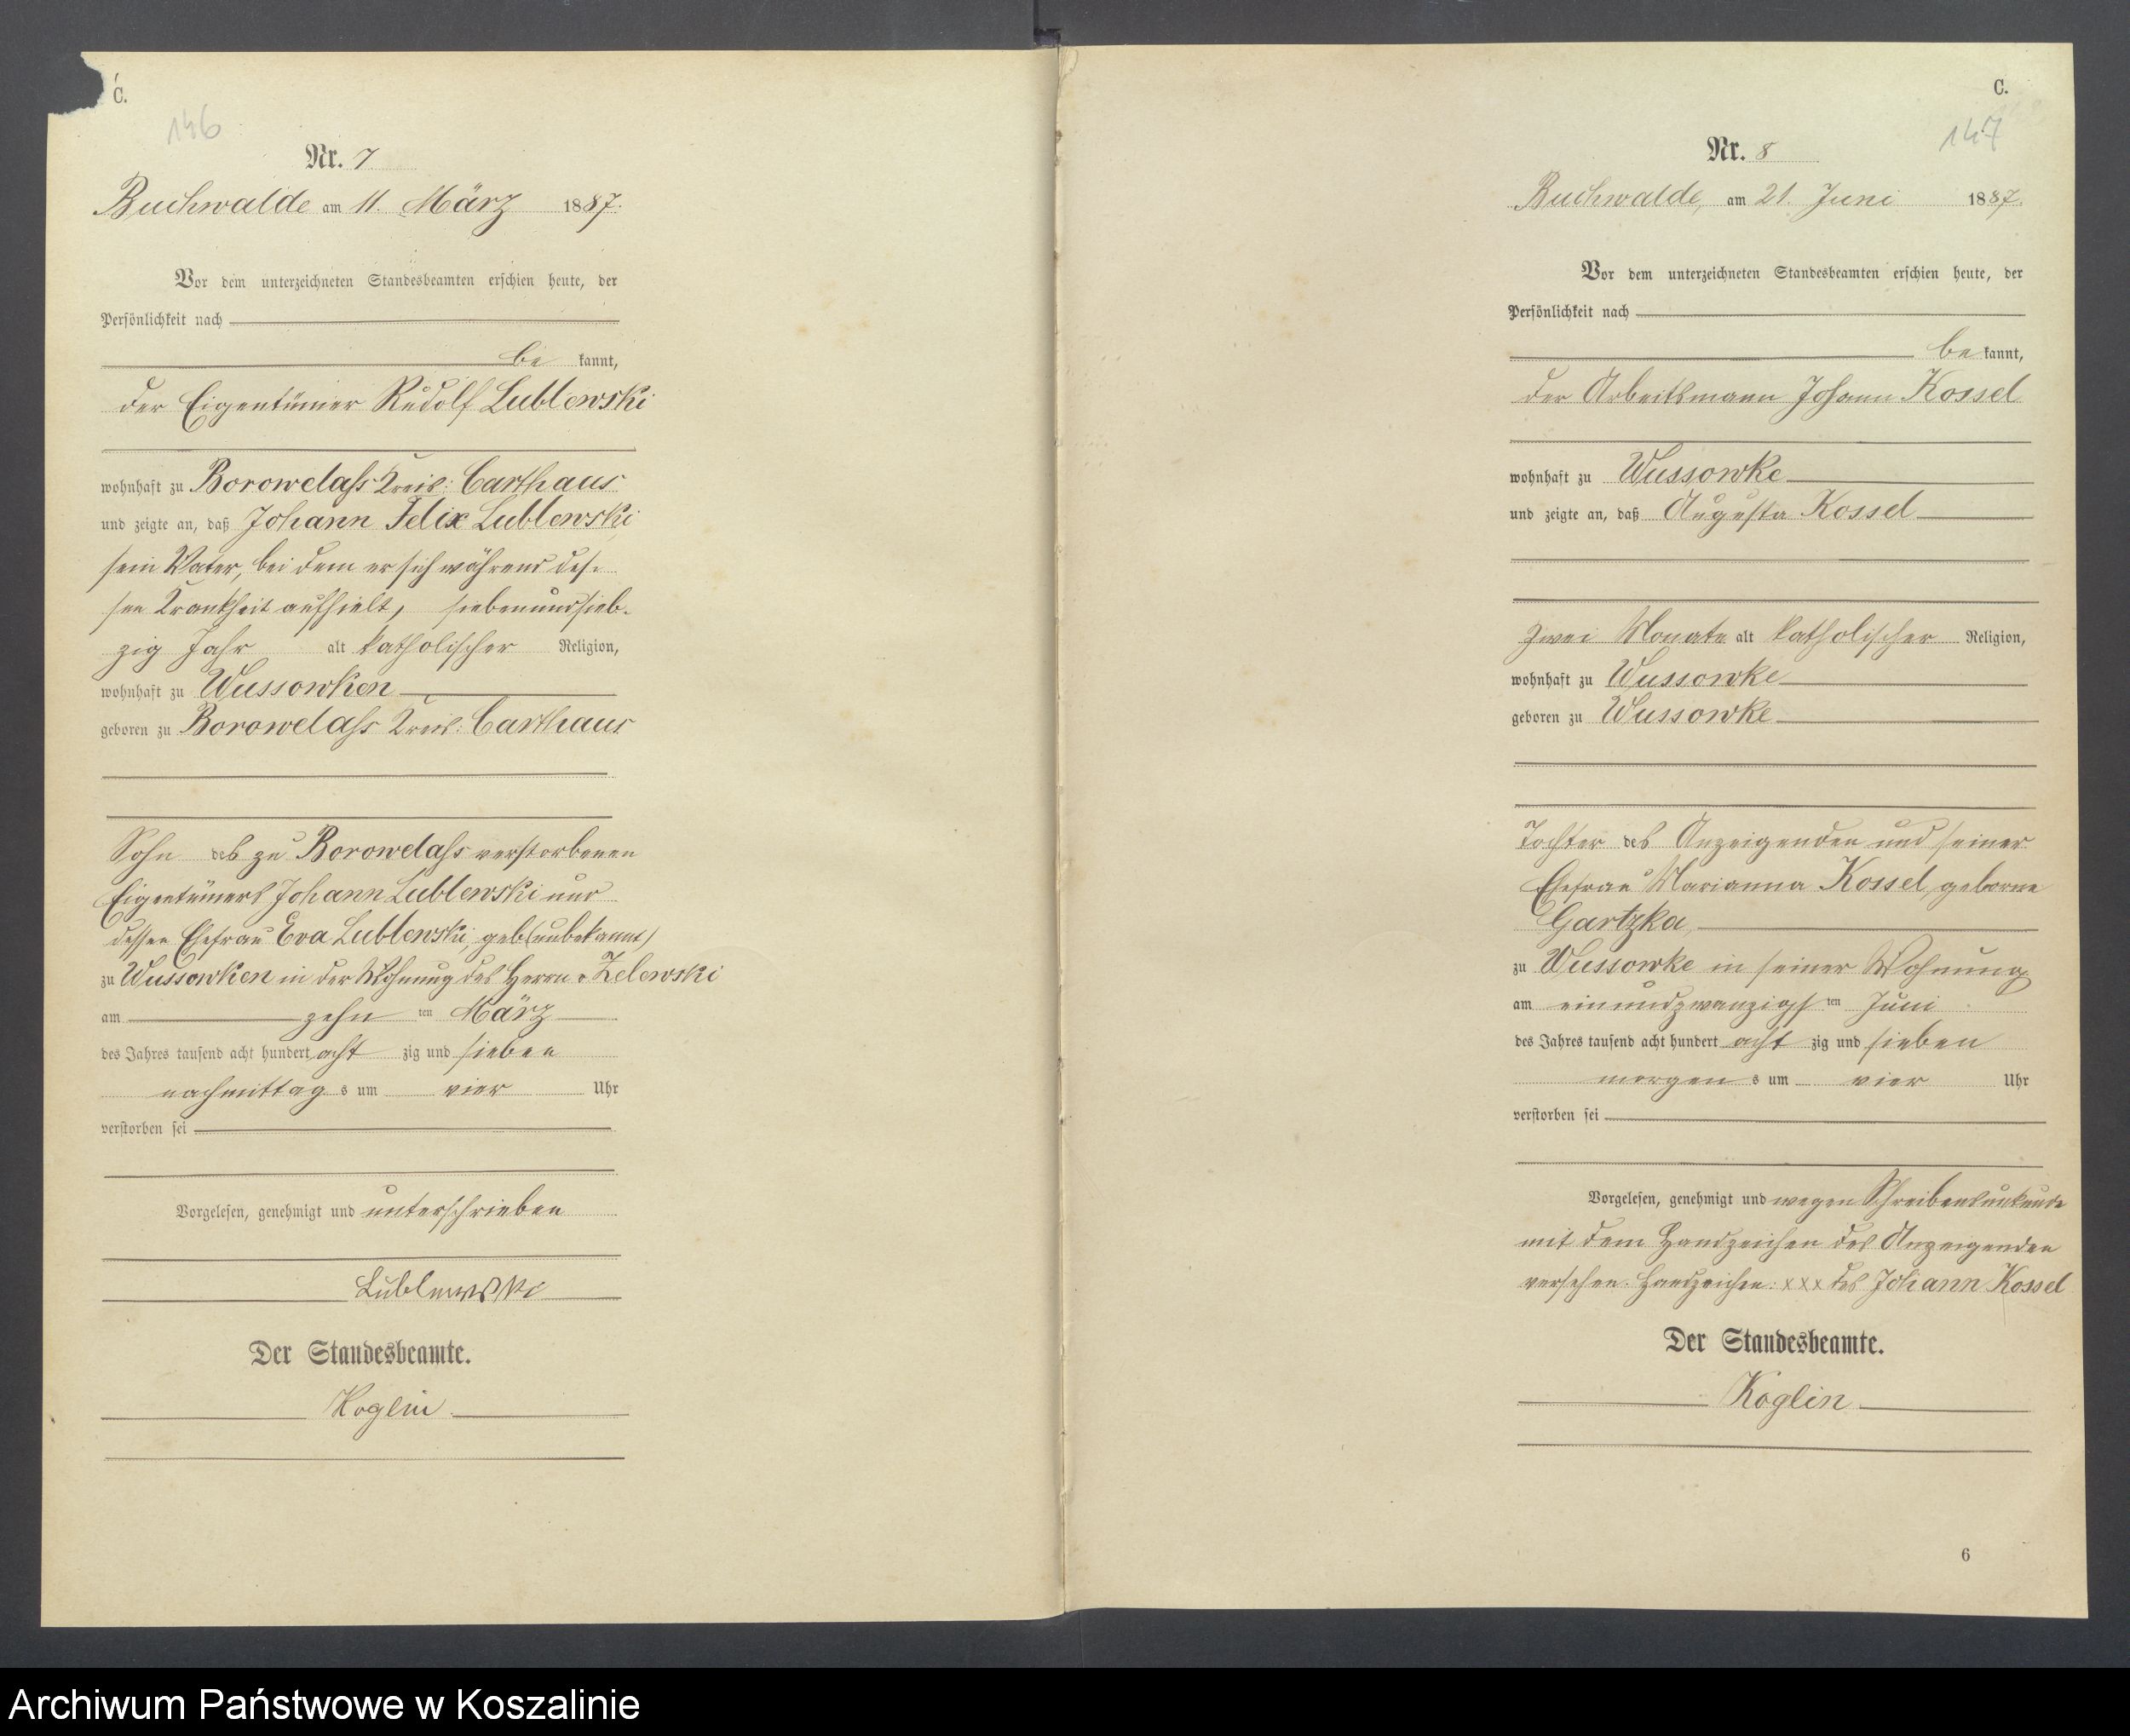 C.
146
Nr. 7
Buchwalde am 11. März 1887.
Vor dem unterzeichneten Standesbeamten erschien heute, der
Persönlichkeit nach
be kannt,
der Eigentümer Rudolf Lublewski
wohnhaft zu Borowelass Kreis: Carthaus
und zeigte an, daß Johann Felix Lublewski,
sein Vater, bei dem er sich während des-
sen Krankheit aufhielt, siebenundsieb-
zig Jahr alt katholischer Religion,
wohnhaft zu Wussowken
geboren zu Borowelass Kreis: Carthaus
Sohn des zu Borowelass verstorbenen
Eigentümers Johann Lublewski und
dessen Ehefrau Eva Lublewski, geb (unbekannt)
zu Wussowken in der Wohnung des Herrn v Zelewski
am zehn ten März
des Jahres tausend acht hundert acht zig und sieben
nachmittag s um vier Uhr
verstorben sei
Vorgelesen, genehmigt und unterschrieben
Lublewski
Der Standesbeamte.
Koglin
C.
147
Nr. 8
Buchwalde, am 21. Juni 1887.
Vor dem unterzeichneten Standesbeamten erschien heute, der
Persönlichkeit nach
be kannt,
der Arbeitsmann Johann Kossel
wohnhaft zu Wussowke
und zeigte an, daß Augusta Kossel
zwei Monate alt katholischer Religion,
wohnhaft zu Wussowke
geboren zu Wussowke
Tochter des Anzeigenden und seiner
Ehefrau Marianna Kossel, geborne
Gartzka
zu Wussowke in seiner Wohnung
am einundzwanzigs ten Juni
des Jahres tausend acht hundert acht zig und sieben
morgen s um vier Uhr
verstorben sei
Vorgelesen, genehmigt und wegen Schreibensunkunde
mit dem Handzeichen des Anzeigenden
versehen. Handzeichen: x x x des Johann Kossel
Der Standesbeamte.
Koglin
6
Archiwum Państwowe w Koszalinie